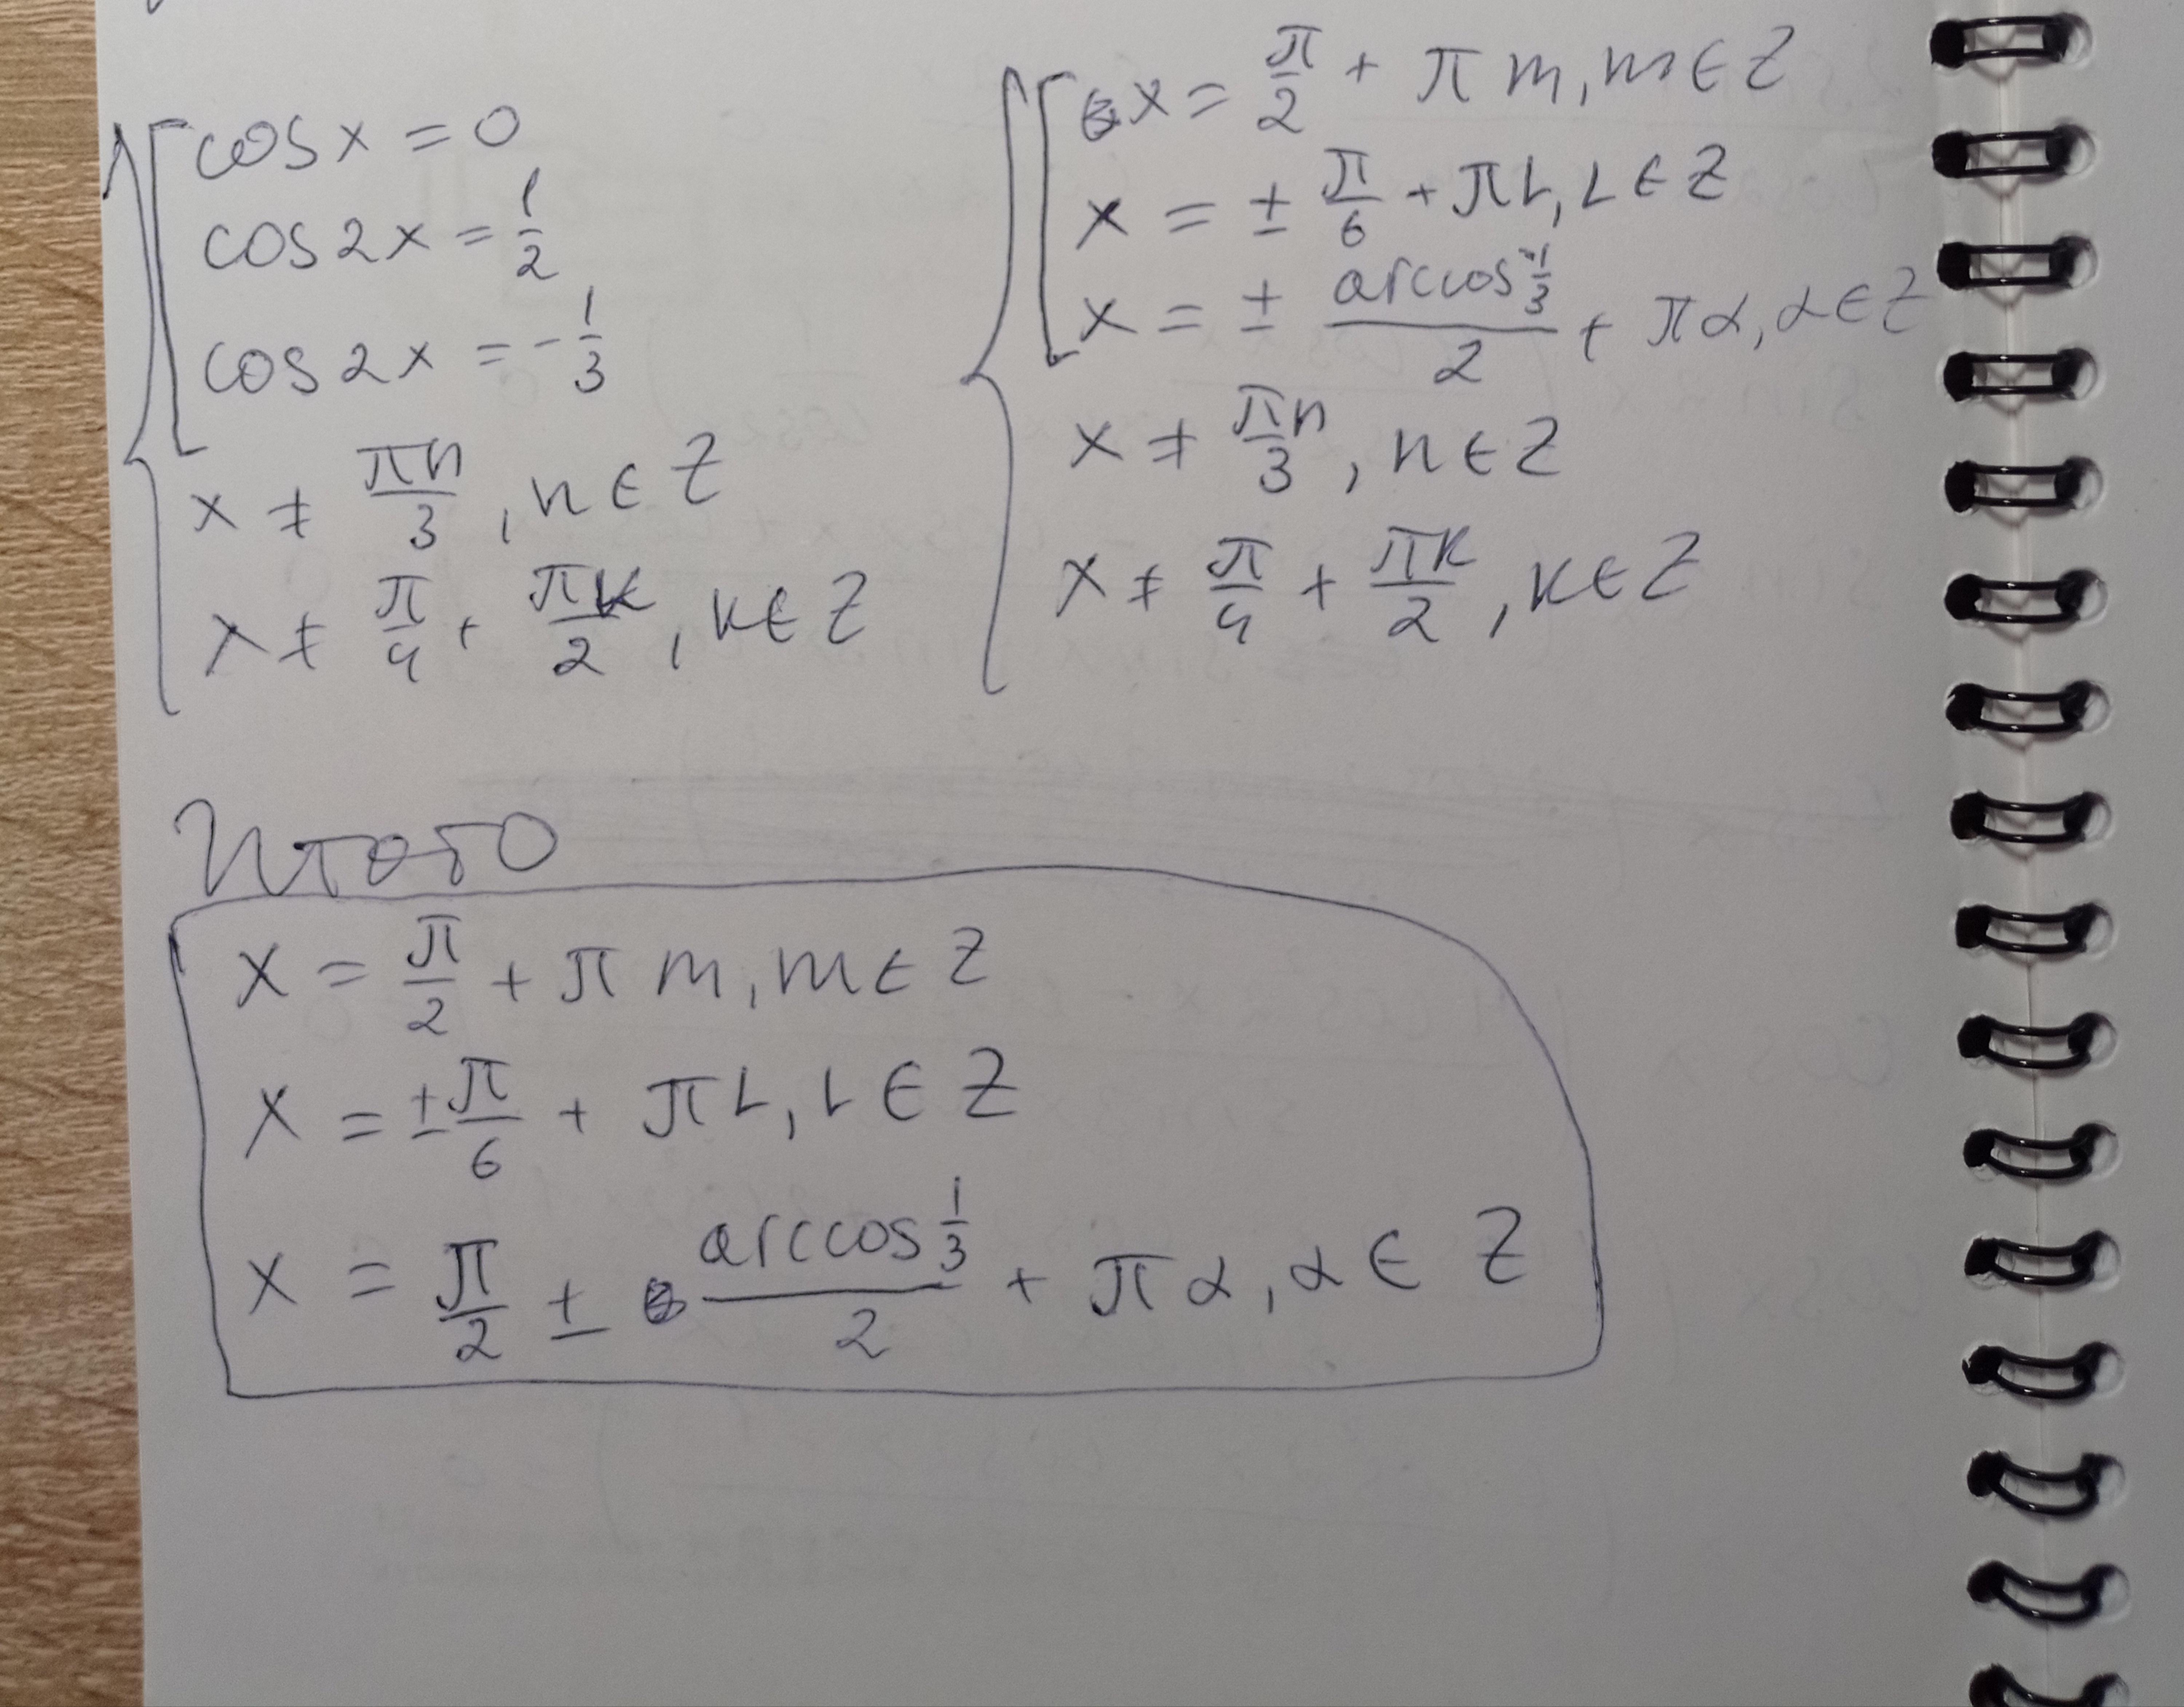 cos x = 0
cos 2x = 1/2
cos 2x = -1/3
x ≠ πn/3, n ∈ Z
x ≠ π/4 + πk/2, k ∈ Z
x = π/2 + πm, m ∈ Z
x = ± π/6 + πL, L ∈ Z
x = ± arccos -1/3 / 2 + πα, α ∈ Z
x ≠ πn/3, n ∈ Z
x ≠ π/4 + πk/2, k ∈ Z
Итого
x = π/2 + πm, m ∈ Z
x = ± π/6 + πL, L ∈ Z
x = π/2 ± arccos 1/3 / 2 + πα, α ∈ Z